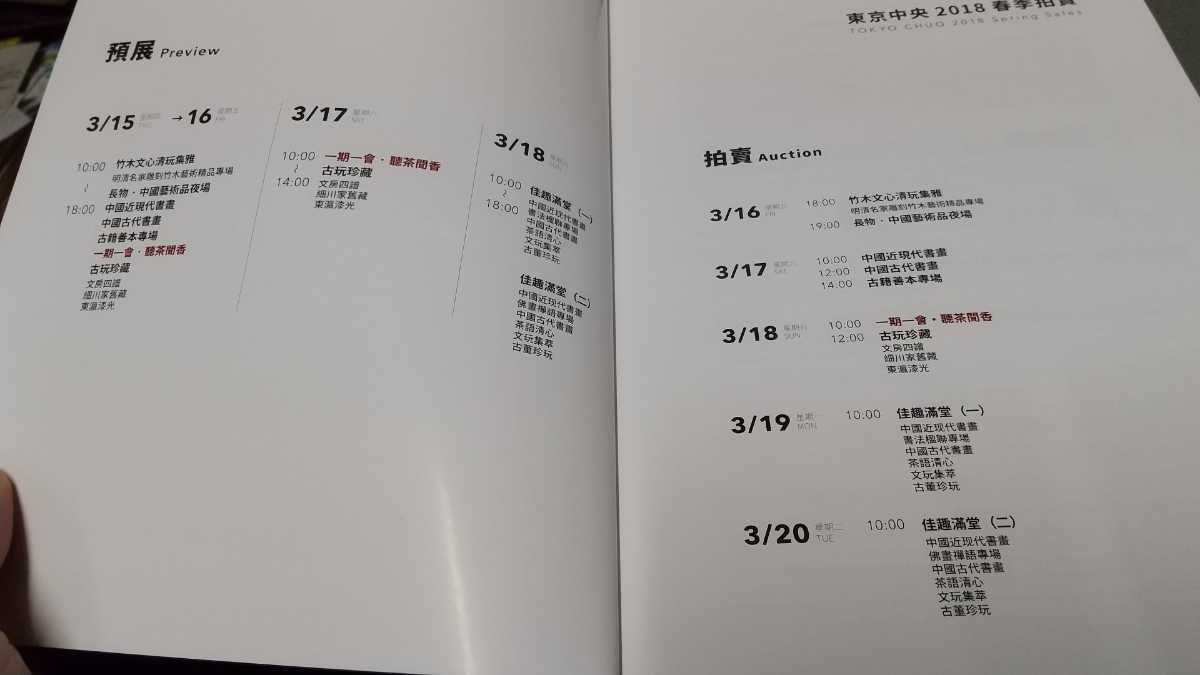 預展 Preview
3/15 星期四 THU → 16 星期五 FRI
10:00 ~ 18:00
竹木文心清玩集雅
明清名家雕刻竹木藝術精品專場
長物・中國藝術品夜場
中國近現代書畫
中國古代書畫
古籍善本專場
一期一會・聽茶聞香
古玩珍藏
文房四譜
細川家舊藏
東瀛漆光
3/17 星期六 SAT
10:00 ~ 14:00
一期一會・聽茶聞香
古玩珍藏
文房四譜
細川家舊藏
東瀛漆光
3/18 星期日 SUN
10:00 ~ 18:00
佳趣滿堂（一）
中國近現代書畫
書法楹聯專場
中國古代書畫
茶語清心
文玩集萃
古董珍玩
佳趣滿堂（二）
中國近現代書畫
佛畫禪語專場
中國古代書畫
茶語清心
文玩集萃
古董珍玩
東京中央 2018 春季拍賣
TOKYO CHUO 2018 Spring Sales
拍賣 Auction
3/16 星期五 FRI
18:00 竹木文心清玩集雅
明清名家雕刻竹木藝術精品專場
19:00 長物・中國藝術品夜場
3/17 星期六 SAT
10:00 中國近現代書畫
12:00 中國古代書畫
14:00 古籍善本專場
3/18 星期日 SUN
10:00 一期一會・聽茶聞香
12:00 古玩珍藏
文房四譜
細川家舊藏
東瀛漆光
3/19 星期一 MON
10:00 佳趣滿堂（一）
中國近現代書畫
書法楹聯專場
中國古代書畫
茶語清心
文玩集萃
古董珍玩
3/20 星期二 TUE
10:00 佳趣滿堂（二）
中國近現代書畫
佛畫禪語專場
中國古代書畫
茶語清心
文玩集萃
古董珍玩